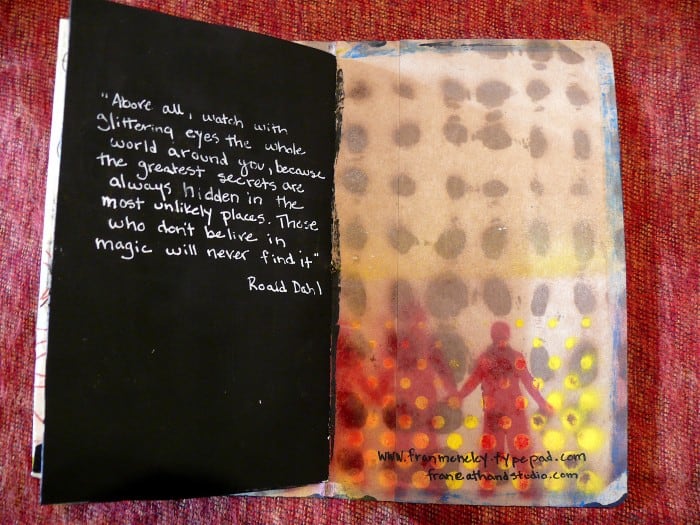 "Above all, watch with
glittering eyes the whole
world around you, because
the greatest secrets are
always hidden in the
most unlikely places. Those
who don't belive in
magic will never find it"
Roald Dahl
www.franmeneley.typepad.com
fran@athandstudio.com